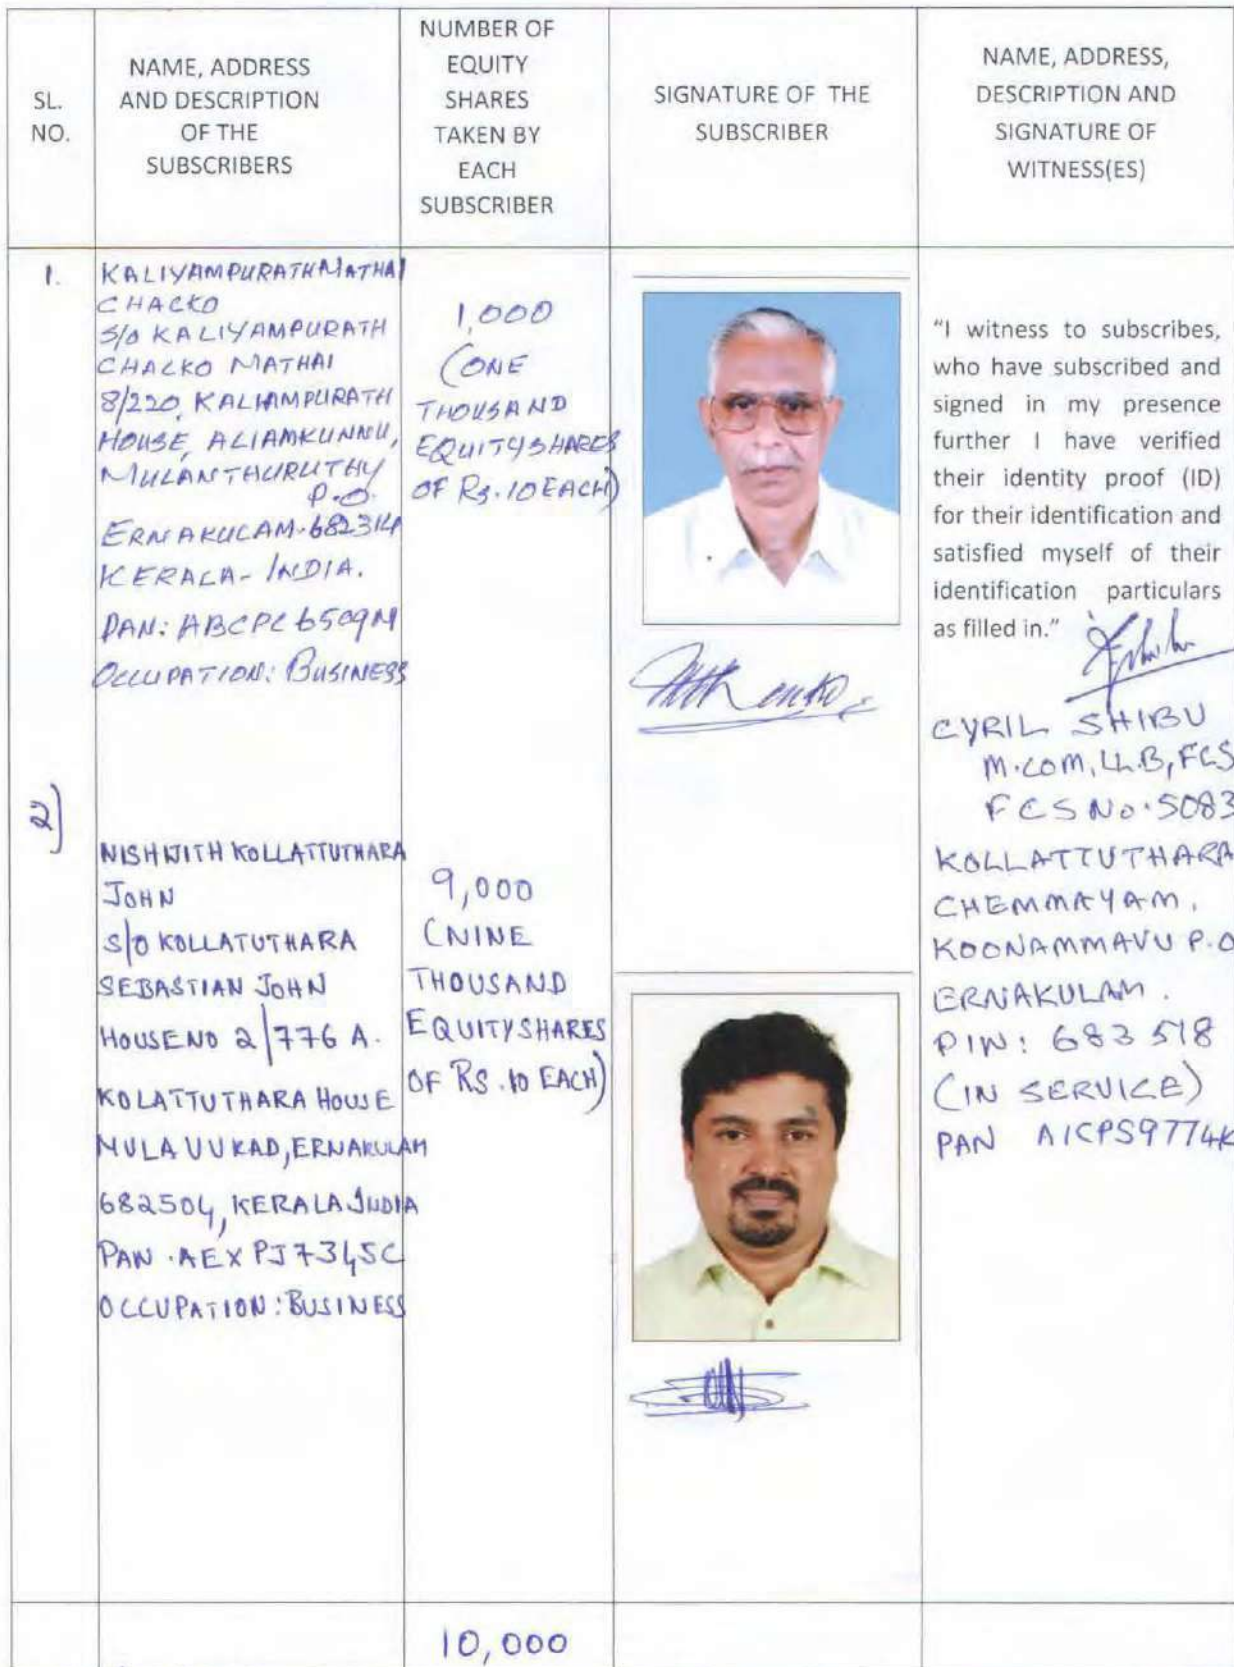 SL.
NO.
NAME, ADDRESS
AND DESCRIPTION
OF THE
SUBSCRIBERS
NUMBER OF
EQUITY
SHARES
TAKEN BY
EACH
SUBSCRIBER
SIGNATURE OF THE
SUBSCRIBER
NAME, ADDRESS,
DESCRIPTION AND
SIGNATURE OF
WITNESS(ES)
1.
KALIYAMPURATH MATHAI
CHACKO
S/O KALIYAMPURATH
CHACKO MATHAI
8/220, KALIAMPURATH
HOUSE, ALIAMKUNNU,
MULANTHURUTHY
P.O.
ERNAKULAM-682314
KERALA-INDIA.
PAN: ABCPC6509M
OCCUPATION: BUSINESS
1,000
(ONE
THOUSAND
EQUITY SHARES
OF Rs. 10 EACH)
"I witness to subscribes,
who have subscribed and
signed in my presence
further I have verified
their identity proof (ID)
for their identification and
satisfied myself of their
identification particulars
as filled in."
CYRIL SHIBU
M.COM, LL.B, FCS
FCS No. 5083
KOLLATTUTHARA
CHEMMAYAM,
KOONAMMAVU P.O
ERNAKULAM.
PIN: 683 518
(IN SERVICE)
PAN AICPS9774K
2)
NISHNITH KOLLATTUTHARA
JOHN
S/O KOLLATUTHARA
SEBASTIAN JOHN
HOUSE NO 2/776 A.
KOLATTUTHARA HOUSE
MULAVUKAD, ERNAKULAM
682504, KERALA INDIA
PAN . AEXPJ7345C
OCCUPATION: BUSINESS
9,000
(NINE
THOUSAND
EQUITY SHARES
OF RS. 10 EACH)
10,000